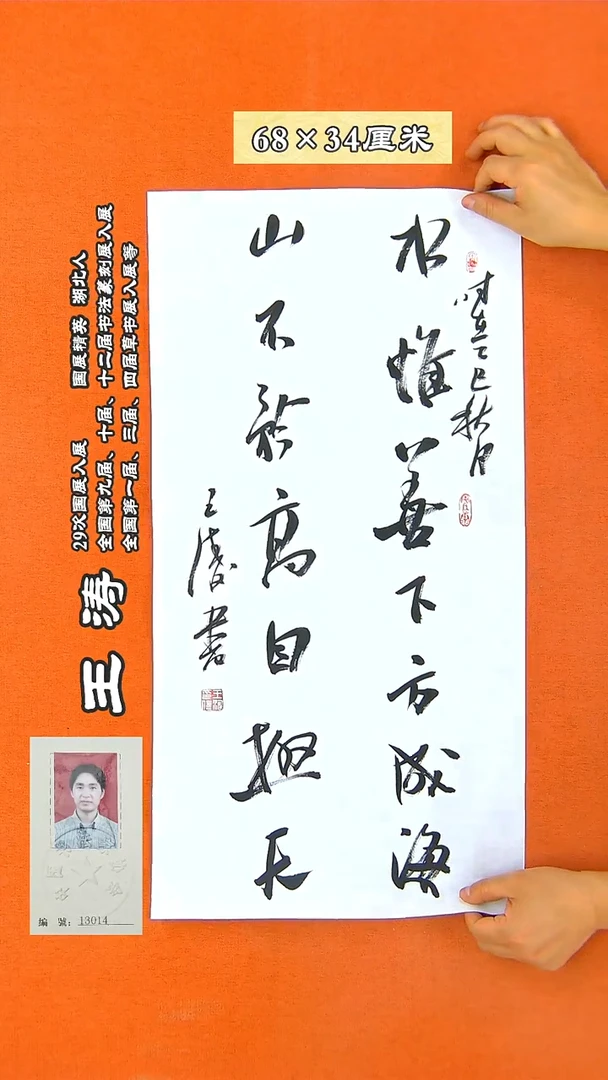 68×34厘米
时在乙巳秋月
水惟善下方成海
山不矜高自極天
王涛書
王涛
29次国展入展 国展精英 湖北人
全国第九届、十届、十二届书法篆刻展入展
全国第一届、三届、四届草书展入展等
編 號：13014